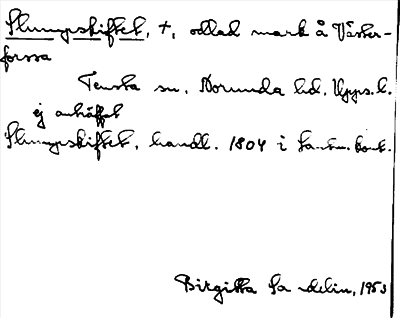 Slumpskiftet, +, odlad mark å Väster-
forssa
Tensta sn, Norunda hd, Upps. l.
ej anträffat
Slumpskiftet, handl. 1804 i Lantm. kont.
Birgitta Sandelin, 1953